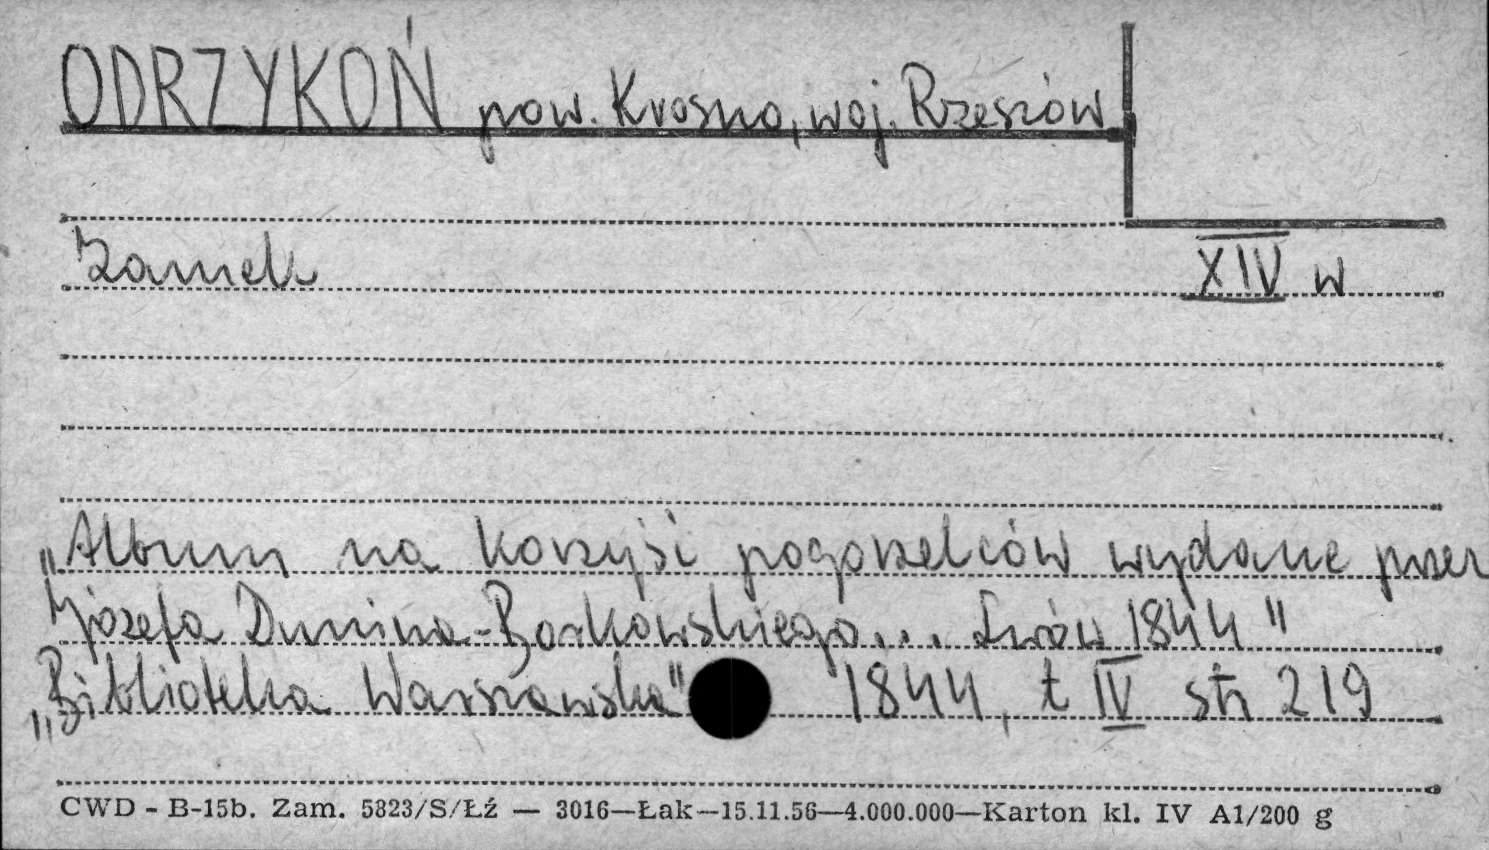 ODRZYKOŃ pow. Krosno, woj. Rzeszów
Zamek XIV w
„Album na korzyść pogorzelców wydane przez
Józefa Dunina-Borkowskiego... Lwów 1844"
„Biblioteka Warszawska" 1844, t IV str 219
CWD - B-15b. Zam. 5823/S/Łź — 3016—Łak—15.11.56—4.000.000—Karton kl. IV A1/200 g